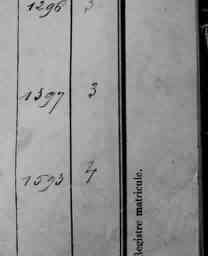 1296 3
1397 3
1593 4
Registre matricule.